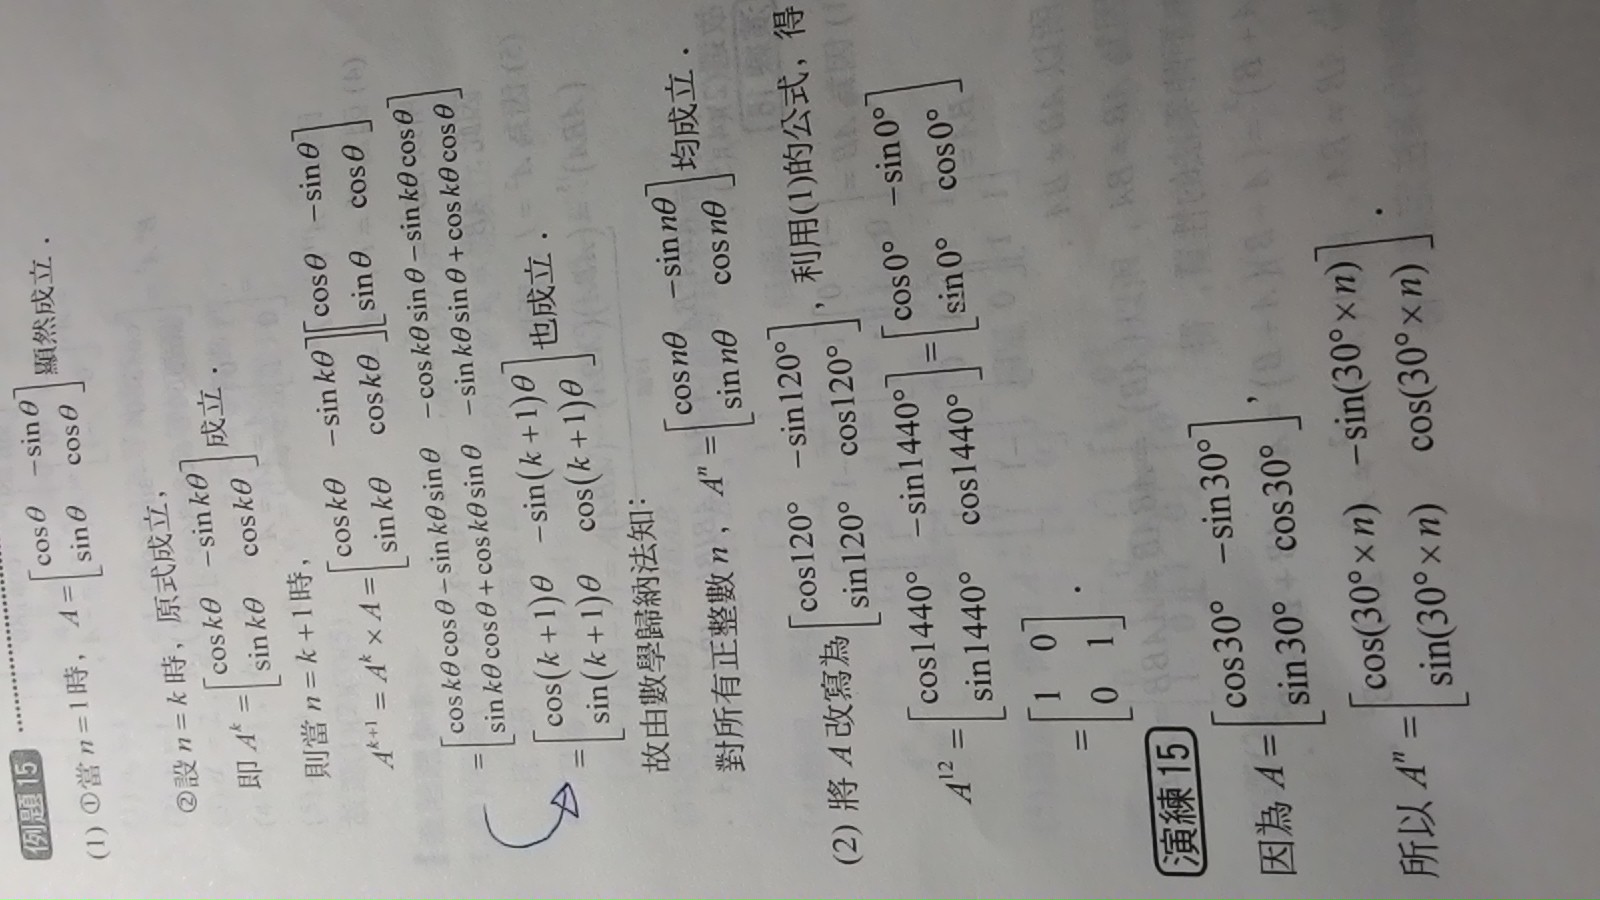 例題 15
(1) ①當 n = 1 時, A = [cosθ -sinθ; sinθ cosθ] 顯然成立.
②設 n = k 時, 原式成立,
即 A^k = [cos kθ -sin kθ; sin kθ cos kθ] 成立.
則當 n = k + 1 時,
A^{k+1} = A^k × A = [cos kθ -sin kθ; sin kθ cos kθ][cosθ -sinθ; sinθ cosθ]
= [cos kθ cosθ - sin kθ sinθ -cos kθ sinθ - sin kθ cosθ; sin kθ cosθ + cos kθ sinθ -sin kθ sinθ + cos kθ cosθ]
= [cos(k+1)θ -sin(k+1)θ; sin(k+1)θ cos(k+1)θ] 也成立.
故由數學歸納法知:
對所有正整數 n, A^n = [cos nθ -sin nθ; sin nθ cos nθ] 均成立.
(2) 將 A 改寫為 [cos120° -sin120°; sin120° cos120°], 利用(1)的公式, 得
A^{12} = [cos1440° -sin1440°; sin1440° cos1440°] = [cos0° -sin0°; sin0° cos0°]
= [1 0; 0 1].
演練 15
因為 A = [cos30° -sin30°; sin30° cos30°],
所以 A^n = [cos(30°×n) -sin(30°×n); sin(30°×n) cos(30°×n)].